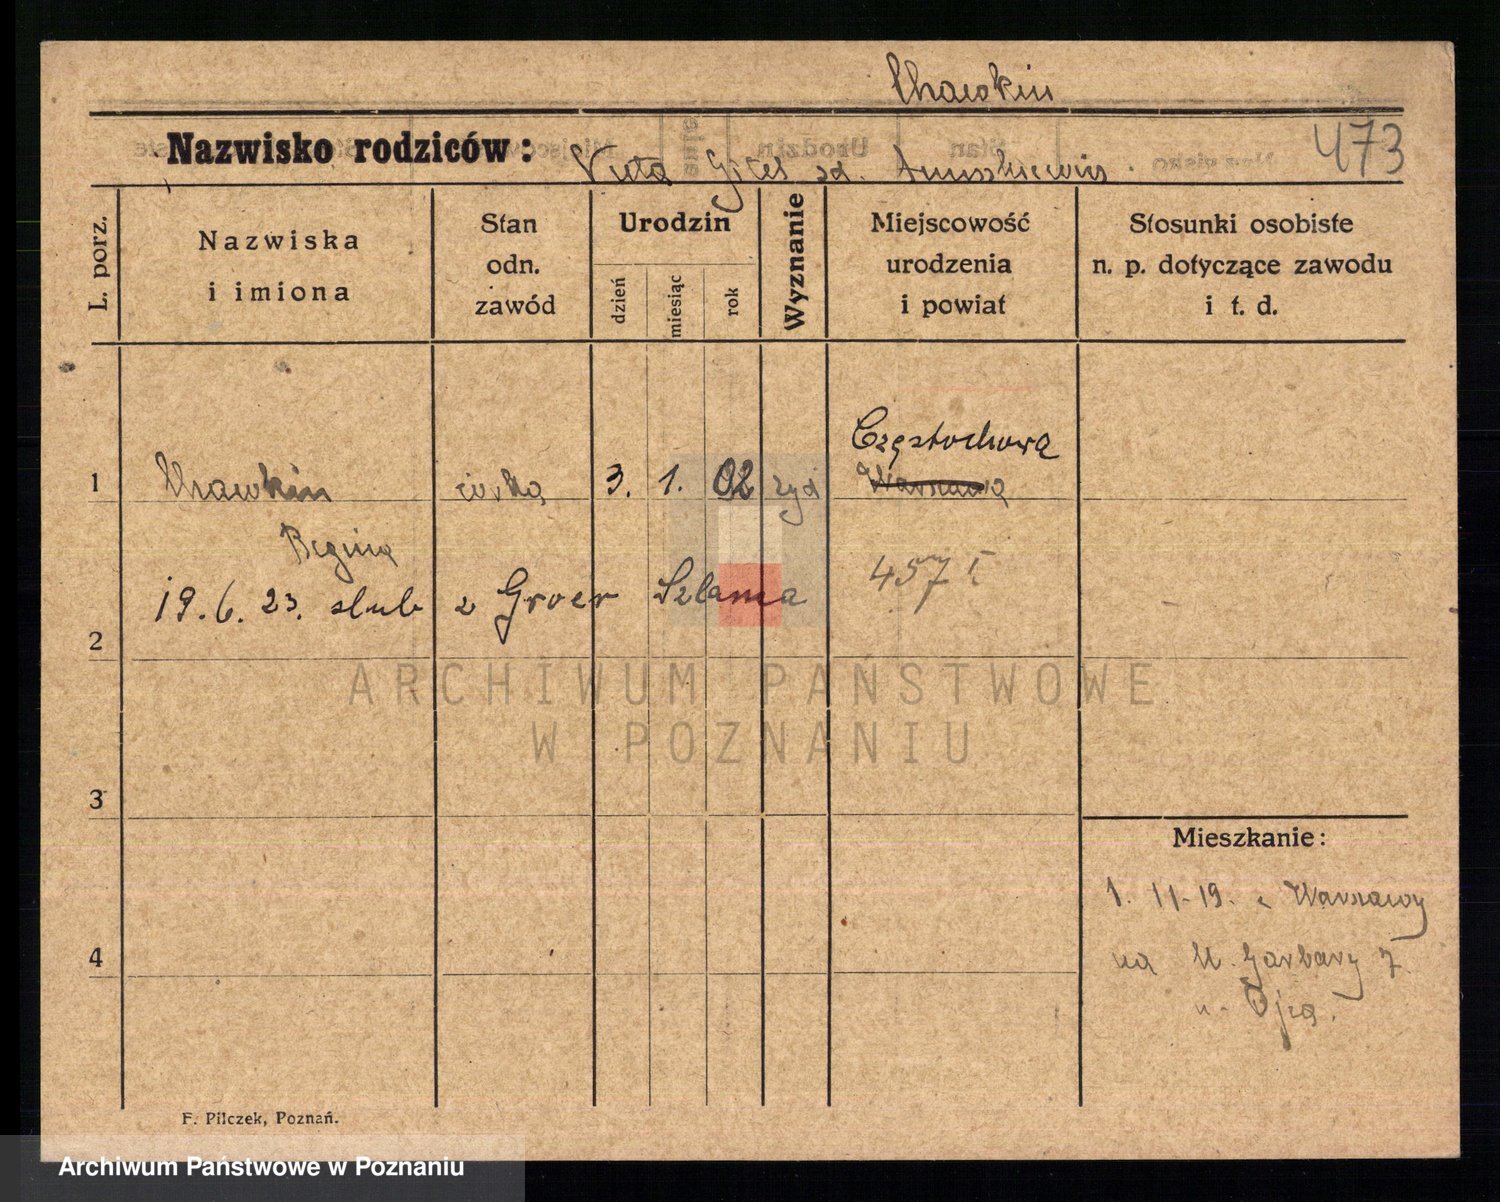 Chawkin
Nazwisko rodziców:
473
L. porz.
Nazwiska
i imiona
Stan
odn.
zawód
Urodzin
dzień
miesiąc
rok
Wyznanie
Miejscowość
urodzenia
i powiat
Stosunki osobiste
n. p. dotyczące zawodu
i t. d.
Częstochowa
1 Chawkin córka 3. 1. 02 żyd Warszawa
Regina
19.6.23. slub z Groer Szlama
457
2
ARCHIWUM PAŃSTWOWE
W POZNANIU
3
Mieszkanie:
1. 11-19. z Warszawy
4
na M. Garbary 7.
u. Ojca.
F. Pilczek, Poznań.
Archiwum Państwowe w Poznaniu